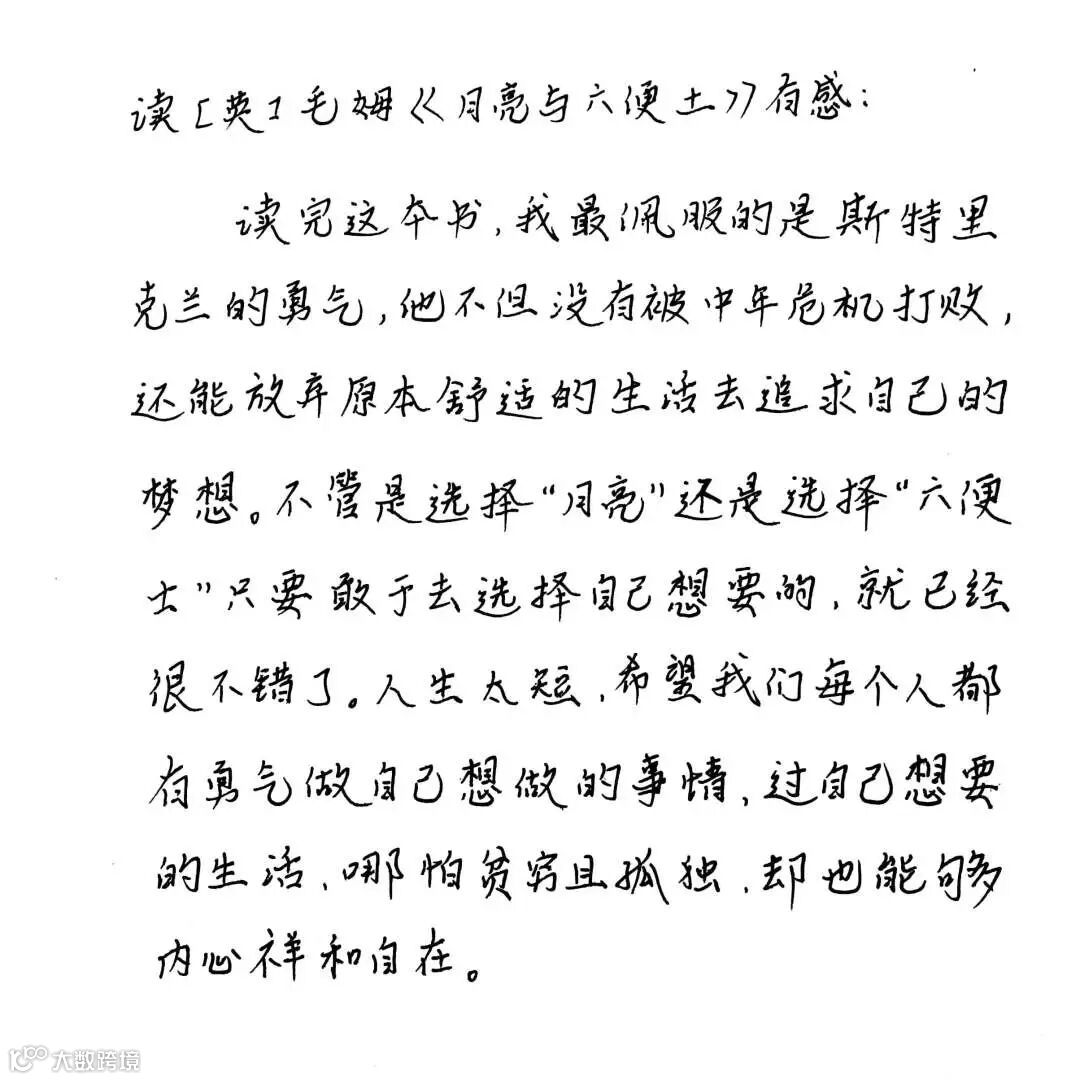 读[英]毛姆《月亮与六便士》有感:
读完这本书,我最佩服的是斯特里
克兰的勇气,他不但没有被中年危机打败,
还能放弃原本舒适的生活去追求自己的
梦想。不管是选择“月亮”还是选择“六便
士”只要敢于去选择自己想要的,就已经
很不错了。人生太短,希望我们每个人都
有勇气做自己想做的事情,过自己想要
的生活、哪怕贫穷且孤独,却也能够多
内心祥和自在。
大数跨境